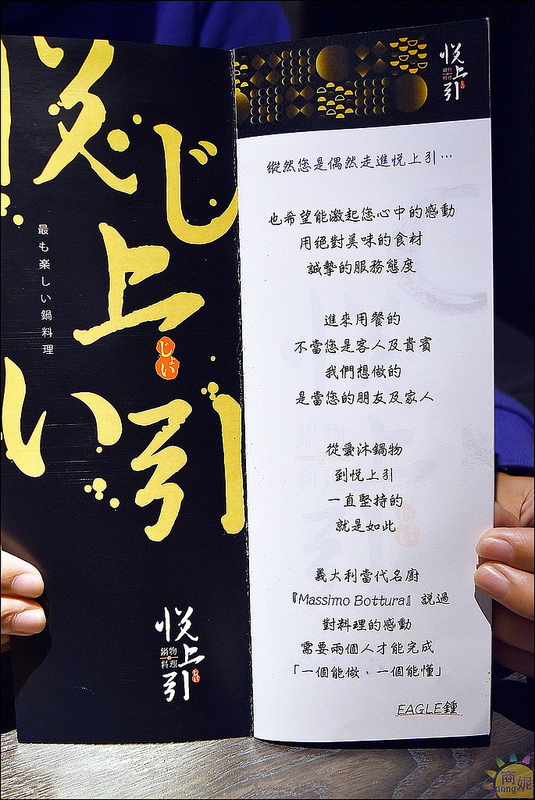 悦上引
じょい
じい
最も楽しい鍋料理
悦上引
鍋物
料理
悦上引
鍋物
料理
縱然您是偶然走進悦上引…
也希望能激起您心中的感動
用絕對美味的食材
誠摯的服務態度
進來用餐的
不當您是客人及貴賓
我們想做的
是當您的朋友及家人
從愛沐鍋物
到悦上引
一直堅持的
就是如此
義大利當代名廚
『Massimo Bottura』說過
對料理的感動
需要兩個人才能完成
「一個能做、一個能懂」
EAGLE鍾
商妮